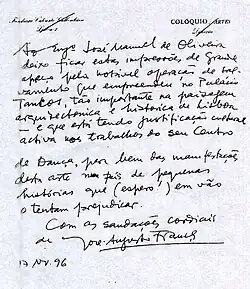 Fundação Calouste Gulbenkian
COLÓQUIO ARTES
Lisboa
Ao Engº José Manuel de Oliveira
deixo ficar estas impressões de grande
apreço pela notável operação de sal-
vamento que empreendeu no Palácio
Tancos, tão importante na paisagem
arquitectónica e histórica de Lisboa
— e que está tendo justificação cultural
activa nos trabalhos do seu Centro
de Dança, por bem das manifestações
desta arte no país de pequenas
histórias que (espero!) em vão
o tentam prejudicar.
Com as saudações cordiais
de José-Augusto França
17 Nv. 96